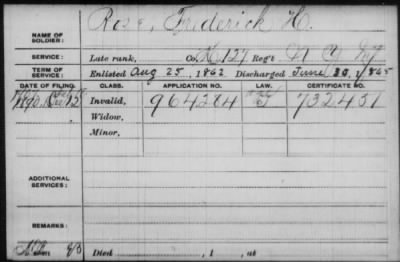 NAME OF SOLDIER: Rose, Frederick H.
SERVICE: Late rank, Co. K, 127 Reg't N Y
TERM OF SERVICE: Enlisted Aug 25, 1862 Discharged June 30, 1865
DATE OF FILING. CLASS. APPLICATION NO. LAW. CERTIFICATE NO.
Invalid, 964284 732451
Widow,
Minor,
ADDITIONAL SERVICES:
REMARKS:
Died , 1 , at